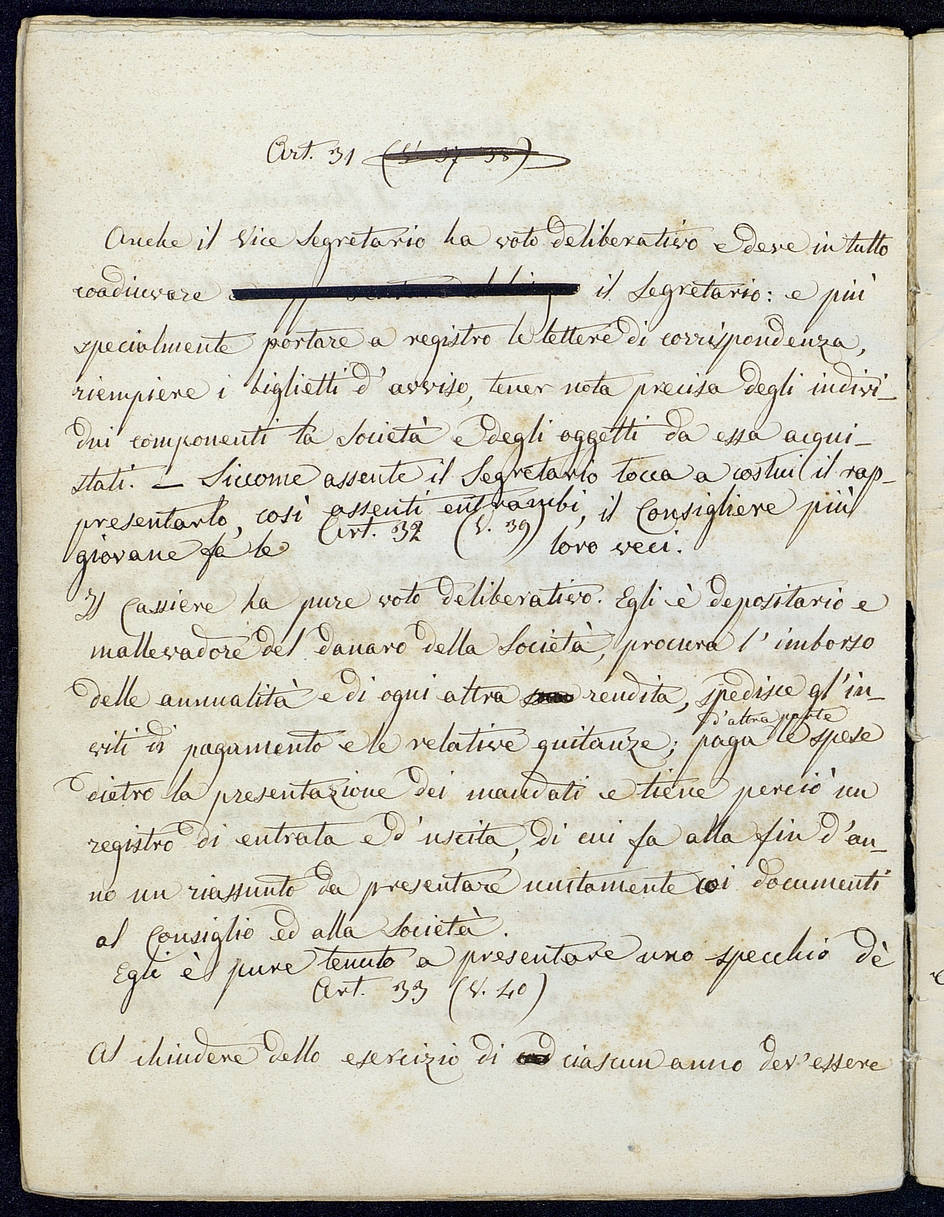 Art. 31 (V. 37 38)
Anche il Vice Segretario ha voto deliberativo e deve in tutto
coadiuvare il Segretario: e più
specialmente portare a registro le lettere di corrispondenza,
riempiere i biglietti d'avviso, tener nota precisa degli indivi-
dui componenti la Società e degli oggetti da essa acqui-
stati. — Siccome assente il Segretario tocca a costui il rap-
presentarlo, così assenti entrambi, il Consigliere più
giovane fa le loro veci.
Art. 32 (V. 39)
Il Cassiere ha pure voto deliberativo. Egli è depositario e
mallevadore del danaro della Società, procura l'imborso
delle annualità e di ogni altra rendita, spedisce gl'in-
d'altra parte
viti di pagamento e le relative quitanze; paga le spese
dietro la presentazione dei mandati e tiene perciò un
registro di entrata e d'uscita, di cui fa alla fin d'an-
no un riassunto da presentare unitamente coi documenti
al Consiglio ed alla Società.
Egli è pure tenuto a presentare uno specchio dè
Art. 33 (V. 40)
Al chiudere dello esercizio di ciascun anno dev'essere